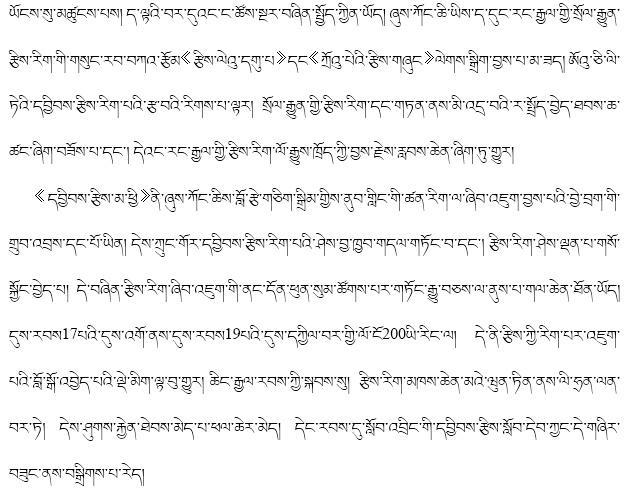 ཡོངས་སུ་མཚུངས་པས། ད་ལྟའི་བར་དུའང་ང་ཚོས་སྔར་བཞིན་སྤྱོད་ཀྱིན་ཡོད། ཞུས་ཀོང་ཆི་ཡིས་ད་དུང་རང་རྒྱལ་གྱི་སྲོལ་རྒྱུན་
རྩིས་རིག་གི་གསུང་རབ་བཀའ་རྩོམ《རྩིས་ལེའུ་དགུ་པ》དང《ཀྲོའུ་པེའི་རྩིས་གཞུང》ལེགས་སྒྲིག་བྱས་པ་མ་ཟད། ཨོའུ་ཅི་ལི་
ཏེའི་དབྱིབས་རྩིས་རིག་པའི་རྩ་བའི་རིགས་པ་ལྟར། སྲོལ་རྒྱུན་གྱི་རྩིས་རིག་དང་གཏན་ནས་མི་འདྲ་བའི་ར་སྤྲོད་བྱེད་ཐབས་ཆ་
ཚང་ཞིག་བཟོས་པ་དང་། དེའང་རང་རྒྱལ་གྱི་རྩིས་རིག་ལོ་རྒྱུས་ཁྲོད་ཀྱི་བྱས་རྗེས་རླབས་ཆེན་ཞིག་ཏུ་གྱུར།
《དབྱིབས་རྩིས་མ་ཕྱི》ནི་ཞུས་ཀོང་ཆིས་བློ་རྩེ་གཅིག་སྒྲིམ་གྱིས་ནུབ་གླིང་གི་ཚན་རིག་ལ་ཞིབ་འཇུག་བྱས་པའི་བྱེ་བྲག་གི་
གྲུབ་འབྲས་དང་པོ་ཡིན། དེས་ཀྲུང་གོར་དབྱིབས་རྩིས་རིག་པའི་ཤེས་བྱ་ཁྱབ་གདལ་གཏོང་བ་དང་། རྩིས་རིག་ཤེས་ལྡན་པ་གསོ་
སྐྱོང་བྱེད་པ། དེ་བཞིན་རྩིས་རིག་ཞིབ་འཇུག་གི་ནང་དོན་ཕུན་སུམ་ཚོགས་པར་གཏོང་རྒྱུ་བཅས་ལ་ནུས་པ་གལ་ཆེན་ཐོན་ཡོད།
དུས་རབས17པའི་དུས་འགོ་ནས་དུས་རབས19པའི་དུས་དཀྱིལ་བར་གྱི་ལོ་ངོ200ཡི་རིང་ལ། དེ་ནི་རྩིས་ཀྱི་རིག་པར་འཇུག་
པའི་བློ་སྒོ་འབྱེད་པའི་ལྡེ་མིག་ལྟ་བུ་གྱུར། ཆིང་རྒྱལ་རབས་ཀྱི་སྐབས་སུ། རྩིས་རིག་མཁས་ཆེན་མའེ་ཝུན་ཏིན་ནས་ལི་ཧྲན་ལན་
བར་ཏེ། དེས་ཤུགས་རྐྱེན་ཐེབས་མེད་པ་ཕལ་ཆེར་མེད། དེང་རབས་དུ་སློབ་འབྲིང་གི་དབྱིབས་རྩིས་སློབ་དེབ་ཀྱང་དེ་གཞིར་
བཟུང་ནས་བསྒྲིགས་པ་རེད།